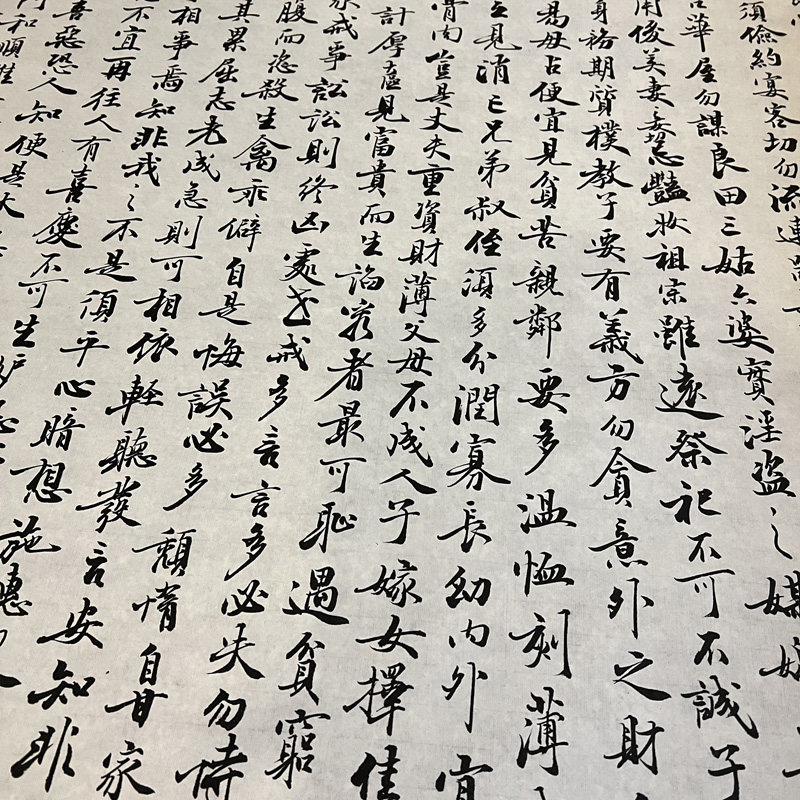 須儉約宴客切勿流連
華屋勿謀良田三姑六婆實淫盜之媒
用俊美妻妾忌豔妝祖宗雖遠祭祀不可不誠子
身務期質樸教子要有義方勿貪意外之財
爲毋占便宜見貧苦親鄰要多溫恤刻薄
立見消亡兄弟叔侄須多分潤寡長幼內外宜
骨肉豈是丈夫重資財薄父母不成人子嫁女擇佳
計厚奩見富貴而生諂容者最可恥遇貧窮
家戒爭訟訟則終凶處世戒多言言多必失勿恃
腹而恣殺生禽乖僻自是悔誤必多頹惰自甘家
其累屈志老成急則可相依輕聽發言安知非
相爭焉知非我之不是須平心暗想施惠
不宜再往人有喜慶不可生妒
喜惡恐人知便是大
和順雖